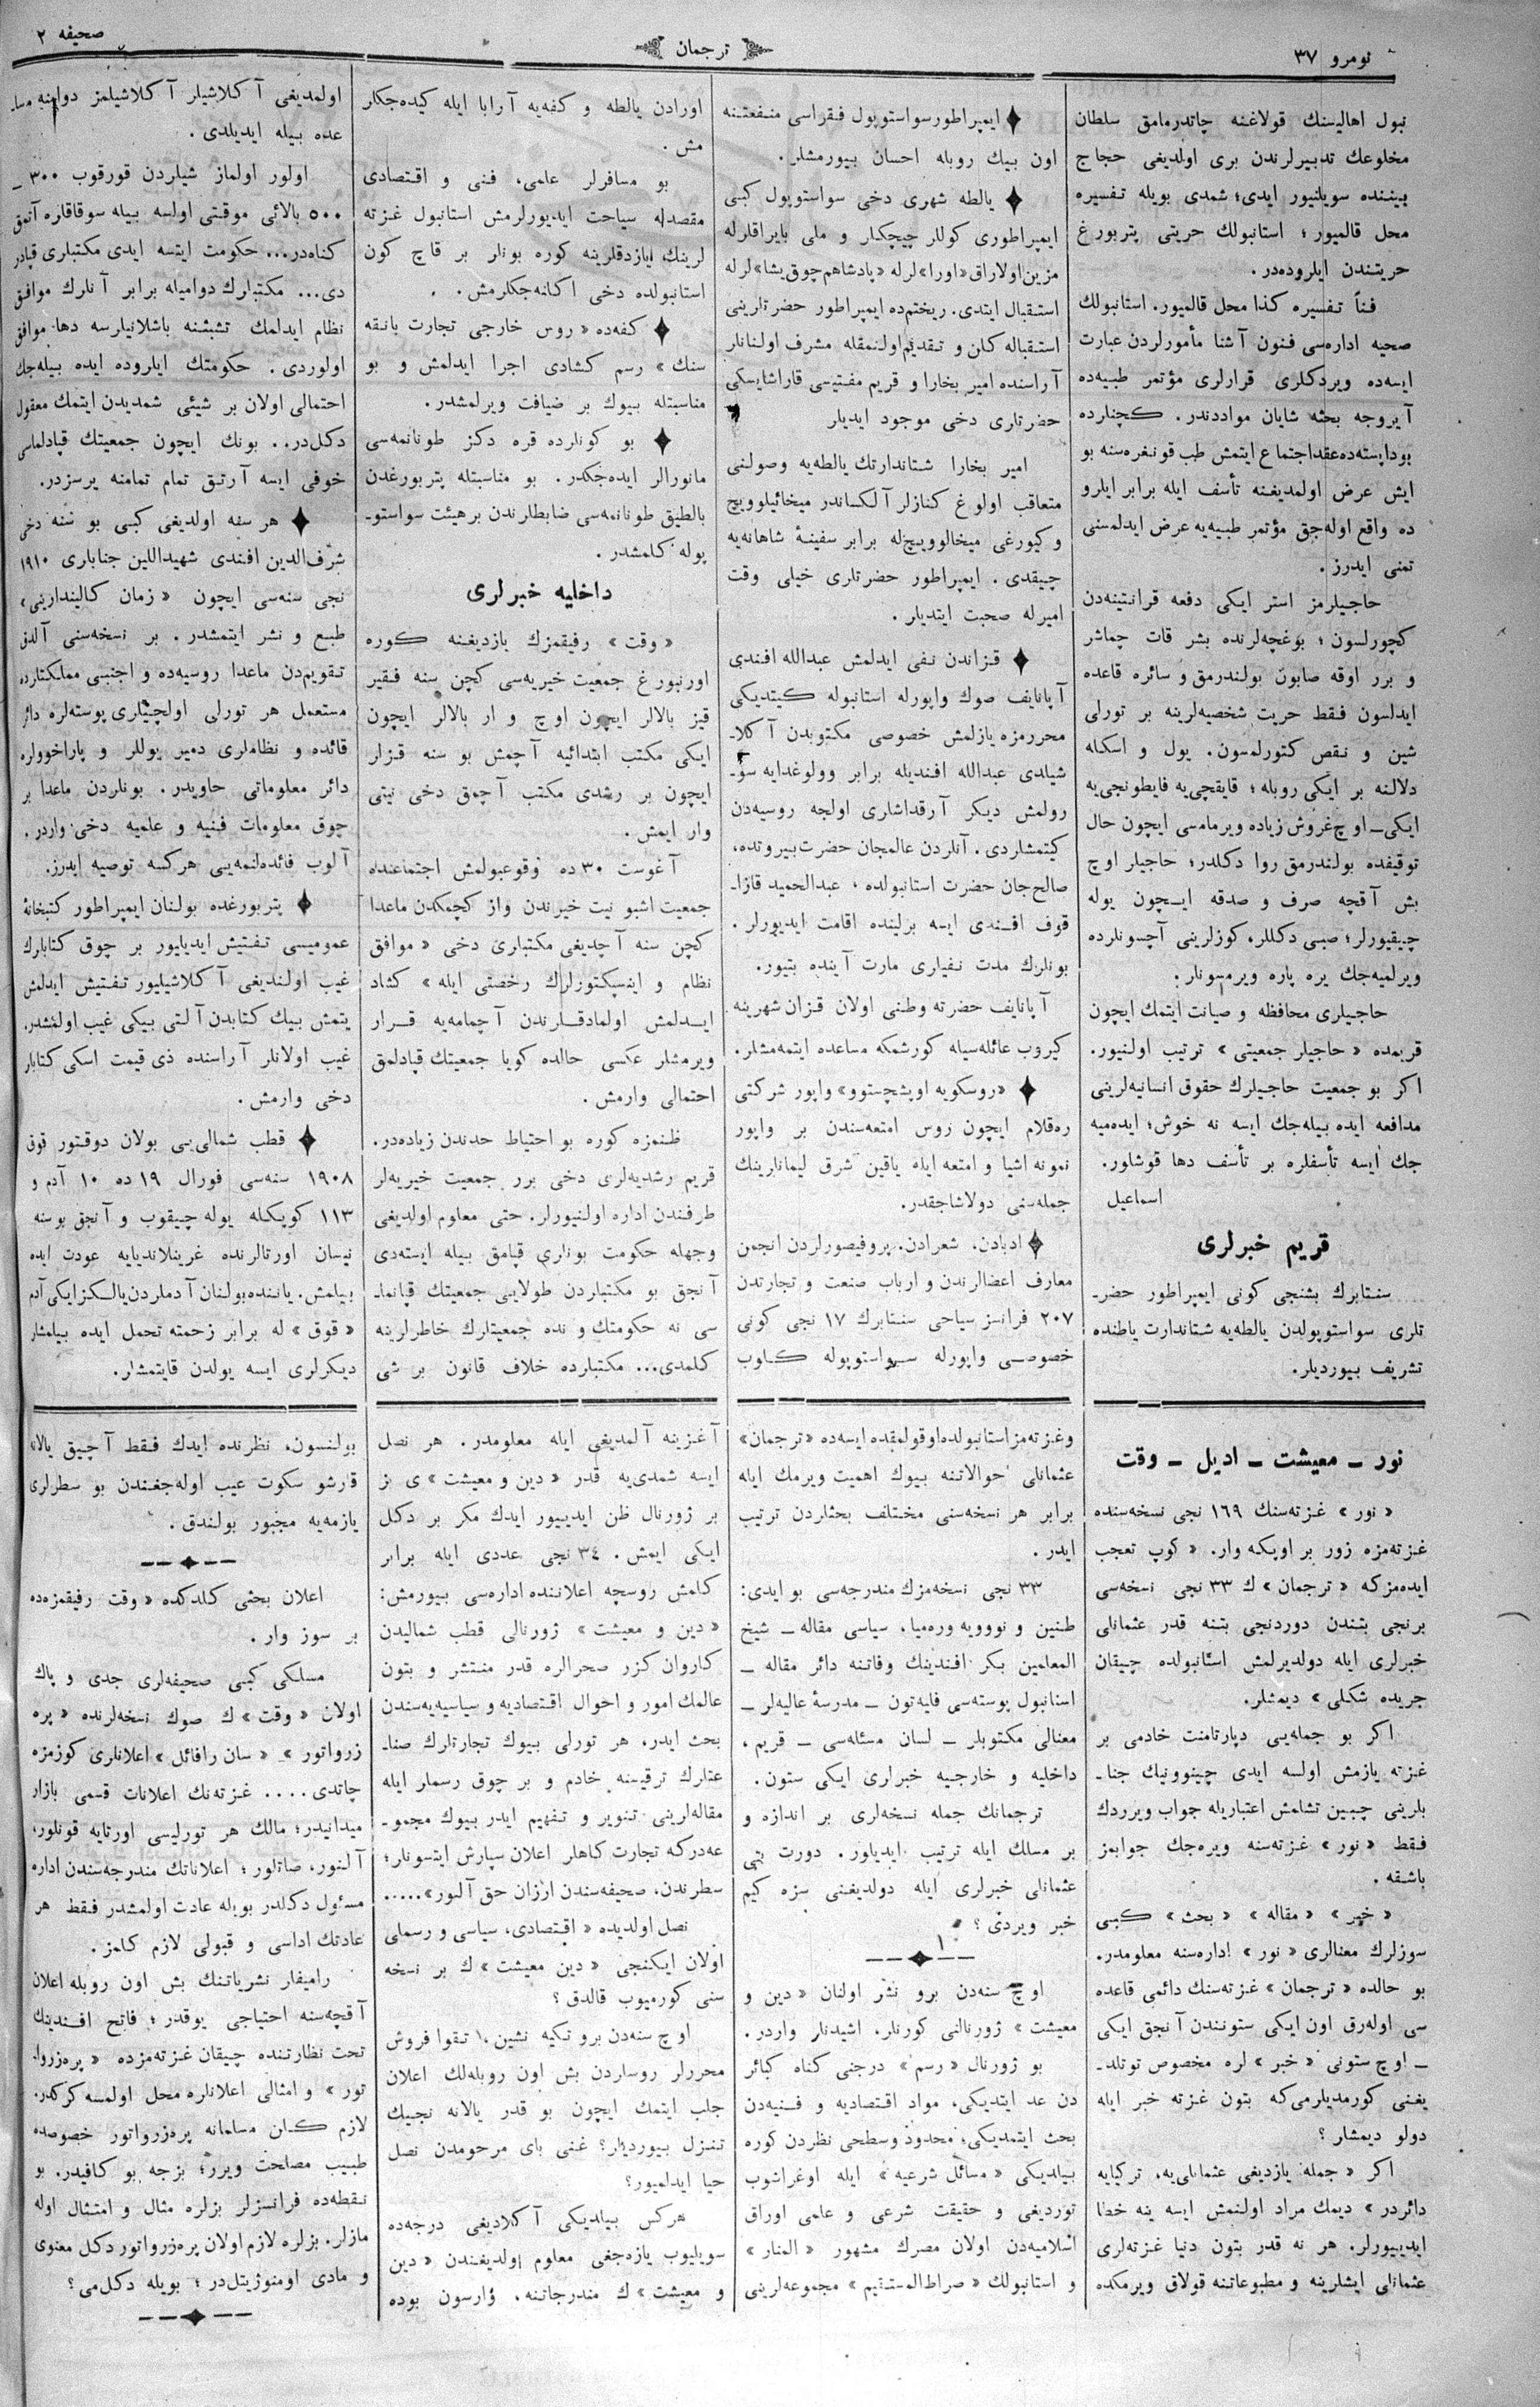 نومرو ۳۷
ترجمان
صحیفه ۲
نبول اهالیسنك قولاغنه چاتدرمامق سلطان
مخلوعك تدبیرلرندن بری اولدیغی حجاج
بیننده سویلنیور ایدی؛ شمدی بویله تفسیره
محل قالمیور؛ استانبولك حریتی پتربورغ
حریتندن ایلروده‌در.
فناً تفسیره کذا محل قالمیور. استانبولك
صحیه اداره‌سی فنون آشنا مأمورلردن عبارت
ایسه‌ده ویردکلری قرارلری مؤتمر طبیه‌ده
آیروجه بحثه شایان مواددندر. کچنلرده
بوداپسته‌ده عقد اجتماع ایتمش طب قونغره‌سنه بو
ایش عرض اولمدیغنه تأسف ایله برابر ایلرو
ده واقع اوله‌جق مؤتمر طبیه‌یه عرض ایدلمسنی
تمنی ایدرز.
حاجیلرمز استر ایکی دفعه قرانتینه‌دن
کچورلسون؛ بوغچه‌لرنده بشر قات چماشر
و برر اوقه صابون بولندرمق و سائره قاعده
ایدلسون فقط حریت شخصیه‌لرینه بر تورلی
شین و نقص کتورلمسون. یول و اسکله
دلالنه بر ایکی روبله؛ قایقچی‌یه فایطونجی‌یه
ایکی ـ اوچ غروش زیاده ویرمامسی ایچون حال
توقیفده بولندرمق روا دکلدر؛ حاجیلر اوچ
بش آقچه صرف و صدقه ایچون یوله
چیقیورلر؛ صبی دکللر، کوزلرینی آچسونلرده
ویرلمیه‌جك یره پاره ویرمسونلر.
حاجیلری محافظه و صیانت ایتمك ایچون
قریمده «حاجیلر جمعیتی» ترتیب اولنیور.
اکر بو جمعیت حاجیلرك حقوق انسانیه‌لرینی
مدافعه ایده بیله‌جك ایسه نه خوش؛ ایده‌میه
جك ایسه تأسفلره بر تأسف دها قوشلور.
اسماعیل
قریم خبرلری
سنتابرك بشنجی کونی ایمپراطور حضر-
تلری سواستوپولدن یالطه‌یه شتاندارت یاطنده
تشریف بیوردیلر.
ایمپراطور سواستوپول فقراسی منفعتنه
اون بیك روبله احسان بیورمشلر.
یالطه شهری دخی سواستوپول کبی
ایمپراطوری کوللر چیچکلر و ملی بایراقلرله
مزین اولاراق «اورا» لرله «پادشاهم چوق یشا» لرله
استقبال ایتدی. ریختم‌ده ایمپراطور حضرتلرینی
استقباله کلن و تقدیم اولنمقله مشرف اولنانلر
آراسنده امیر بخارا و قریم مفتیسی قاراشایسکی
حضرتلری دخی موجود ایدیلر
امیر بخارا شتاندارتك یالطه‌یه وصولنی
متعاقب اولوغ کنازلر آلکساندر میخائیلوویچ
و کیورغی میخالوویچ‌له برابر سفینهٔ شاهانه‌یه
چیقدی. ایمپراطور حضرتلری خیلی وقت
امیرله صحبت ایتدیلر.
قزاندن نفی ایدلمش عبدالله افندی
آپانایف صوك واپورله استانبوله کیتدیکی
محررمزه یازلمش خصوصی مکتوبدن آکلا-
شیلدی عبدالله افندیله برابر وولوغدایه سو-
رولمش دیکر آرقداشلری اولجه روسیه‌دن
کیتمشلردی. آنلردن عالمجان حضرت بیروتده،
صالح‌جان حضرت استانبولده، عبدالحمید قازا-
قوف افندی ایسه برلینده اقامت ایدیورلر.
بونلرك مدت نفیلری مارت آینده بتیور.
آپانایف حضرته وطنی اولان قزان شهرینه
کیروب عائله‌سیله کورشمکه مساعده ایتمه‌مشلر.
«روسکویه اوپشچستوو» واپور شرکتی
ره‌قلام ایچون روس امتعه‌سندن بر واپور
نمونه اشیا و امتعه ایله یاقین شرق لیمانلرینك
جمله‌سنی دولاشاجقدر.
ادبادن، شعرادن، پروفیصورلردن انجمن
معارف اعضالرندن و ارباب صنعت و تجارتدن
۲۰۷ فرانسز سیاحی سنتابرك ۱۷ نجی کونی
خصوصی واپورله سواستوپوله کلوب
اورادن یالطه و کفه‌یه آرابا ایله کیده‌جکلر
مش.
بو مسافرلر علمی، فنی و اقتصادی
مقصدله سیاحت ایدیورلرمش استانبول غزته
لرینك یازدقلرینه کوره بونلر بر قاچ کون
استانبولده دخی اکلنه‌جکلرمش.
کفه‌ده «روس خارجی تجارت بانقه
سنك» رسم کشادی اجرا ایدلمش و بو
مناسبتله بیوك بر ضیافت ویرلمشدر.
بو کونلرده قره دکز طونانمه‌سی
مانورالر ایده‌جکدر. بو مناسبتله پتربورغدن
بالطیق طونانمه‌سی ضابطلرندن بر هیئت سواستو-
پوله کلمشدر.
داخلیه خبرلری
«وقت» رفیقمزك یازدیغنه کوره
اورنبورغ جمعیت خیریه‌سی کچن سنه فقیر
قیز بالالر ایچون اوچ و ار بالالر ایچون
ایکی مکتب ابتدائیه آچمش بو سنه قزلر
ایچون بر رشدی مکتب آچمق دخی نیتی
وار ایمش.
آغوست ۳۰ ده وقوعبولمش اجتماعنده
جمعیت اشبو نیت خیرندن واز کچمکدن ماعدا
کچن سنه آچدیغی مکتبلری دخی «موافق
نظام و اینسپکتورلرك رخصتی ایله» کشاد
ایدلمش اولمادقلرندن آچمامه‌یه قرار
ویرمشلر عکسی حالده کویا جمعیتك قپادلمق
احتمالی وارمش.
ظنمزه کوره بو احتیاط حدندن زیاده‌در.
قریم رشدیه‌لری دخی برر جمعیت خیریه‌لر
طرفندن اداره اولنیورلر. حتی معلوم اولدیغی
وجهله حکومت بونلری قپامق بیله ایسته‌دی
آنجق بو مکتبلردن طولایی جمعیتك قپانما-
سی نه حکومتك و نده جمعیتلرك خاطرلرینه
کلمدی... مکتبلرده خلاف قانون بر شی
اولمدیغی آکلاشیلر آکلاشیلمز دوامنه مسا-
عده بیله ایدیلدی.
اولور اولماز شیلردن قورقوب ۳۰۰ ـ
۵۰۰ بالائی موقتی اولسه بیله سوقاقلره آتمق
کناه‌در... حکومت ایتسه ایدی مکتبلری قپادر
دی... مکتبلرك دوامیله برابر آنلرك موافق
نظام ایدلمك تشبثنه باشلانیلرسه دها موافق
اولوردی. حکومتك ایلروده ایده بیله‌جك
احتمالی اولان بر شیئی شمدیدن ایتمك معقول
دکل‌در.. بونك ایچون جمعیتك قپادلماسی
خوفی ایسه آرتق تمام تمامنه یرسزدر.
هر سنه اولدیغی کبی بو سنه دخی
شرف‌الدین افندی شهیداللین جنابلری ۱۹۱۰
نجی سنه‌سی ایچون «زمان کالیندارینی»
طبع و نشر ایتمشدر. بر نسخه‌سنی آلدق
تقویم‌دن ماعدا روسیه‌ده و اجنبی مملکتلرده
مستعمل هر تورلی اولچیلری پوسته‌لره دائر
قائده و نظاملری دمیر یوللر و پاراخودلره
دائر معلوماتی حاویدر. بونلردن ماعدا بر
چوق معلومات فنیه و علمیه دخی واردر.
آلوب فائده‌لنمه‌یی هرکسه توصیه ایدرز.
پتربورغده بولنان ایمپراطور کتبخانهٔ
عمومیسی تفتیش ایدیلیور بر چوق کتابلرك
غیب اولندیغی آکلاشیلیور تفتیش ایدلمش
یتمش بیك کتابدن آلتی بیکی غیب اولنمشدر.
غیب اولانلر آراسنده ذی قیمت اسکی کتابلر
دخی وارمش.
قطب شمالی‌یی بولان دوقتور قوق
۱۹۰۸ سنه‌سی فورال ۱۹ ده ۱۰ آدم و
۱۱۳ کوپکله یوله چیقوب و آنجق بو سنه
نیسان اورتالرنده غرینلاندیایه عودت ایده
بیلمش. یاننده بولنان آدملردن یالکز ایکی آدم
«قوق» له برابر زحمته تحمل ایده بیلمشلر
دیکرلری ایسه یولدن قایتمشلر.
نور ـ معیشت ـ ادیل ـ وقت
«نور» غزته‌سنك ۱٦۹ نجی نسخه‌سنده
غزته‌مزه زور بر اوپکه وار. «کوپ تعجب
ایده‌مزکه «ترجمان» ك ۳۳ نجی نسخه‌سی
برنجی بتندن دوردنجی بتنه قدر عثمانلی
خبرلری ایله دولدیرلمش استانبولده چیقان
جریده شکلی» دیمشلر.
اکر بو جمله‌یی دپارتامنت خادمی بر
غزته یازمش اولسه ایدی چینوونیك جنا-
بلرینی چیبین تشلامش اعتباریله جواب ویرردك
فقط «نور» غزته‌سنه ویره‌جك جوابمز
باشقه.
«خبر» «مقاله» «بحث» کبی
سوزلرك معنالری «نور» اداره‌سنه معلومدر.
بو حالده «ترجمان» غزته‌سنك دائمی قاعده
سی اوله‌رق اون ایکی ستوندن آنجق ایکی
ـ اوچ ستونی «خبر» لره مخصوص توتلد-
یغنی کورمدیلرمی‌که بتون غزته خبر ایله
دولو دیمشلر؟
اکر «جمله یازدیغی عثمانلی‌یه، ترکیایه
دائردر» دیمك مراد اولنمش ایسه ینه خطا
ایدییورلر. هر نه قدر بتون دنیا غزته‌لری
عثمانلی ایشلرینه و مطبوعاتنه قولاق ویرمکده
وغزته‌مز استانبولده اوقولمقده ایسه‌ده «ترجمان»
عثمانلی حوالاتنه بیوك اهمیت ویرمك ایله
برابر هر نسخه‌سنی مختلف بحثلردن ترتیب
ایدر.
۳۳ نجی نسخه‌مزك مندرجه‌سی بو ایدی:
طنین و نوویه وره‌میا، سیاسی مقاله ـ شیخ
المعلمین بکر افندینك وفاتنه دائر مقاله ـ
استانبول پوسته‌سی فلیه‌تون ـ مدرسهٔ عالیه‌لر ـ
معنالی مکتوبلر ـ لسان مسئله‌سی ـ قریم،
داخلیه و خارجیه خبرلری ایکی ستون.
ترجمانك جمله نسخه‌لری بر اندازه و
بر مسلك ایله ترتیب ایدیلور. دورت بتی
عثمانلی خبرلری ایله دولدیغنی سزه کیم
خبر ویردی؟
اوچ سنه‌دن برو نشر اولنان «دین و
معیشت» ژورنالنی کورنلر، اشیدنلر واردر.
بو ژورنال «رسم» درجنی کناه کبائر
دن عد ایتدیکی، مواد اقتصادیه و فنیه‌دن
بحث ایتمدیکی، محدود وسطحی نظردن کوره
بیلدیکی «مسائل شرعیه» ایله اوغراشوب
توردیغی و حقیقت شرعی و علمی اوراق
اسلامیه‌دن اولان مصرك مشهور «المنار»
و استانبولك «صراط المستقیم» مجموعه‌لرینی
آغزینه آلمدیغی ایله معلومدر. هر نصل
ایسه شمدی‌یه قدر «دین و معیشت» ی بز
بر ژورنال ظن ایدییور ایدك مکر بر دکل
ایکی ایمش. ۳٤ نجی عددی ایله برابر
کلمش روسچه اعلاننده اداره‌سی بیورمش:
«دین و معیشت» ژورنالی قطب شمالیدن
کاروان کزر صحرالره قدر منتشر و بتون
عالمك امور و احوال اقتصادیه و سیاسیه‌سندن
بحث ایدر، هر تورلی بیوك تجارتلرك صنا-
عتلرك ترقیسنه خادم و بر چوق رسملر ایله
مقاله‌لرینی تنویر و تفهیم ایدر بیوك مجمو-
عه‌درکه تجارت کاهلر اعلان سپارش ایتسونلر؛
سطرندن، صحیفه‌سندن ارزان حق آلنور».....
نصل اولدیده «اقتصادی، سیاسی و رسملی
اولان ایکنجی «دین معیشت» ك بر نسخه
سنی کورمیوب قالدق؟
اوچ سنه‌دن برو تکیه نشین، تقوا فروش
محررلر روسلردن بش اون روبله‌لك اعلان
جلب ایتمك ایچون بو قدر یالانه نجیك
تنزل بیوردیلر؟ غنی بای مرحومدن نصل
حیا ایدلمیور؟
هرکس بیلدیکی آکلادیغی درجه‌ده
سویلیوب یازه‌جغی معلوم اولدیغندن «دین
و معیشت» ك مندرجاتنه، وارسون بوده
بولنسون، نظرنده ایدك فقط آچیق یالانه
قارشو سکوت عیب اوله‌جغندن بو سطرلری
یازمه‌یه مجبور بولندق.
اعلان بحثی کلدکده «وقت رفیقمزه‌ده
بر سوز وار.
مسلکی کبی صحیفه‌لری جدی و پاك
اولان «وقت» ك صوك نسخه‌لرنده «پره
زرواتور» «سان رافائل» اعلانلری کوزمزه
چاتدی.... غزته‌نك اعلانات قسمی بازار
میدانیدر؛ مالك هر تورلیسی اورتایه قونلور،
آلنور، صاتلور؛ اعلاناتك مندرجه‌سندن اداره
مسئول دکلدر بویله عادت اولمشدر فقط هر
عادتك اداسی و قبولی لازم کلمز.
رامیفلر نشریاتنك بش اون روبله اعلان
آقچه‌سنه احتیاجی یوقدر؛ فاتح افندینك
تحت نظارتنده چیقان غزته‌مزده «پره‌زروا-
تور» و امثالی اعلانلره محل اولمسه کرکدر.
لازم کلن مسلمانه پره‌زرواتور خصوصده
طبیب مصلحت ویرر؛ بزجه بو کافیدر. بو
نقطه‌ده فرانسزلر بزلره مثال و امتثال اوله
مازلر. بزلره لازم اولان پره‌زرواتور دکل معنوی
و مادی اومنوژیتل‌در؛ بویله دکل‌می؟